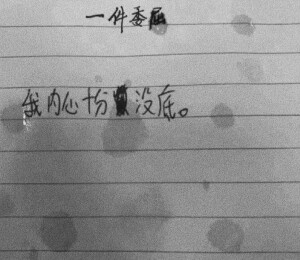 一件委屈
我内心十分没底。